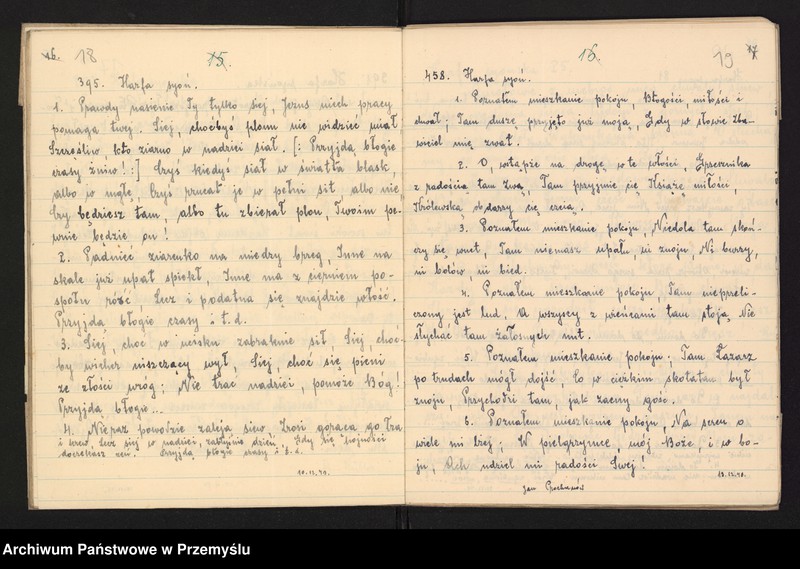 16. 18 15.
395. Harfa syoń.
1. Prawdy nasienie Ty tylko siej, Jezus niech pracy
pomaga twej. Siej, choćbyś plonu nie widzieć miał
Szczęśliw, kto ziarno w nadziei siał. [: Przyjdą błogie
czasy żniw! :] Czyś kiedyś siał w światła blask,
albo w mgłę, Czyś rzucał je w pełni sił albo nie
Czy będziesz tam, albo tu zbierał plon, Twoim pe-
wnie będzie on!
2. Padnieć ziarenko na miedzy brzeg, Inne na
skale już upał spiekł, Inne ma z cierniem po-
społu róść Lecz i podatna się znajdzie włość.
Przyjdą błogie czasy i t.d.
3. Siej, choć w wersku zabraknie sił, Siej, choć-
by wicher niszczący wył, Siej, choć się pieni
ze złości wróg; Nie trać nadziei, pomoże Bóg!
Przyjdą błogie...
4. Nieraz powodzie zaleją siew Zrosi gorąca go łza
i krew, Lecz siej w nadziei, zabłyśnie dzień, Gdy się
doczekasz Przyjdą błogie czasy i t.d.
10.12.40.
16. 19 17
458. Harfa syoń.
1. Poznałem mieszkanie pokoju, Błogości, miłości i
chwał; Tam duszę przyjęto już moją, Gdy w słowie Zba-
wiciel mię zwał.
2. O, wstąpże na drogę w te włości, Grzesznika
z radością tam zwą, Tam przyjmie cię Książę miłości,
Królewską obdarzy cię czcią.
3. Poznałem mieszkanie pokoju, Niedola tam skoń-
czy się wnet, Tam niemasz upału, ni znoju, Ni burzy,
ni bólów, ni bied.
4. Poznałem mieszkanie pokoju, Tam nieprzeli-
czony jest lud, A wszyscy z wieńcami tam stoją Nie
słychać tam żałosnych nut.
5. Poznałem mieszkanie pokoju; Tam Łazarz
po trudach mógł dojść, Co w ciężkim skołatan był
znoju, Przychodzi tam, jak zacny gość.
6. Poznałem mieszkanie pokoju, Na sercu o
wiele mi lżej; W pielgrzymce, mój Boże, i w bo-
ju, Ach udziel mi radości Swej!
13.12.40.
Jan
Archiwum Państwowe w Przemyślu